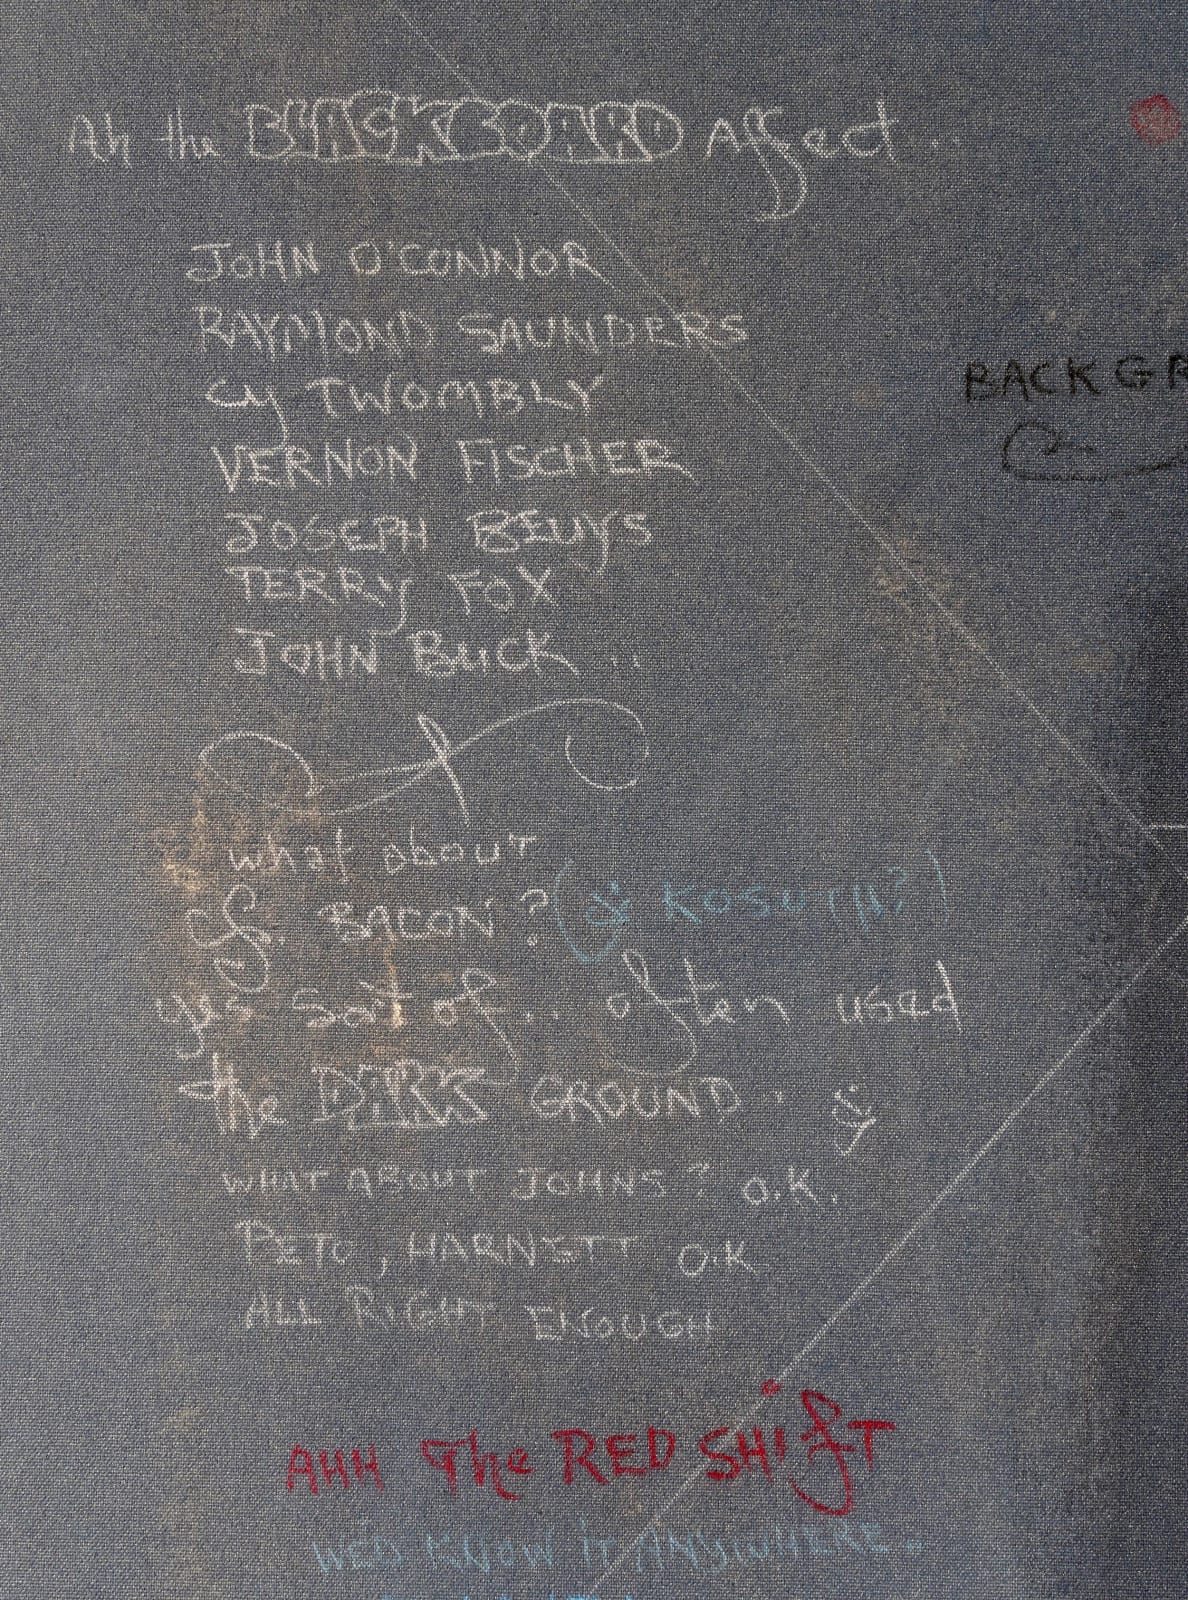 Ah the BLACKBOARD Affect ..
JOHN O'CONNOR
RAYMOND SAUNDERS
Cy TWOMBLY
VERNON FISCHER
JOSEPH BEUYS
TERRY FOX
JOHN BUCK ..
BACKGR
what about
f. BACON? (& KOSUTH?)
yes sort of .. often used
the DARK GROUND . &
WHAT ABOUT JOHNS? O.K.
PETO, HARNETT O.K
ALL RIGHT ENOUGH
AHH The RED SHifT
WE'D KNOW iT ANYWHERE.